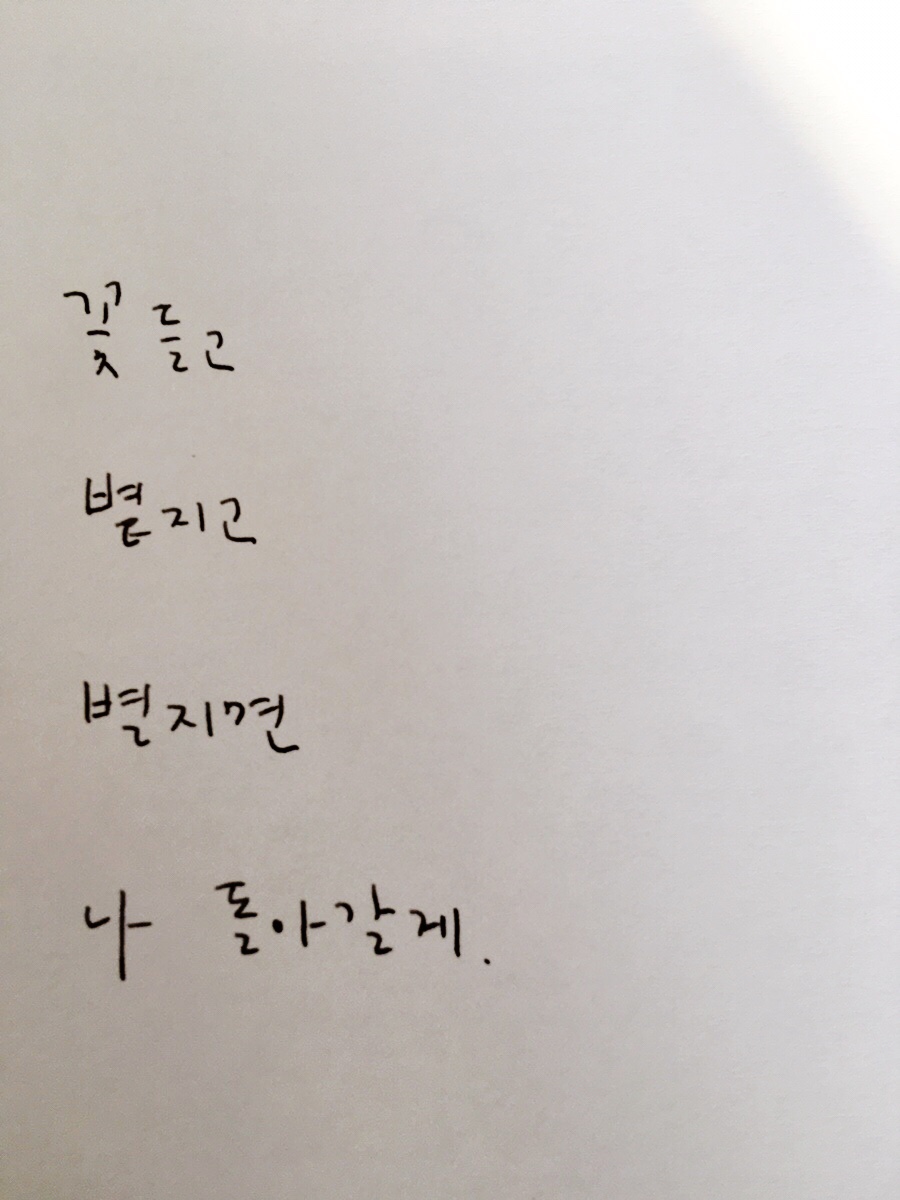 꽃 들고
볕 지고
별 지면
나 돌아갈게.